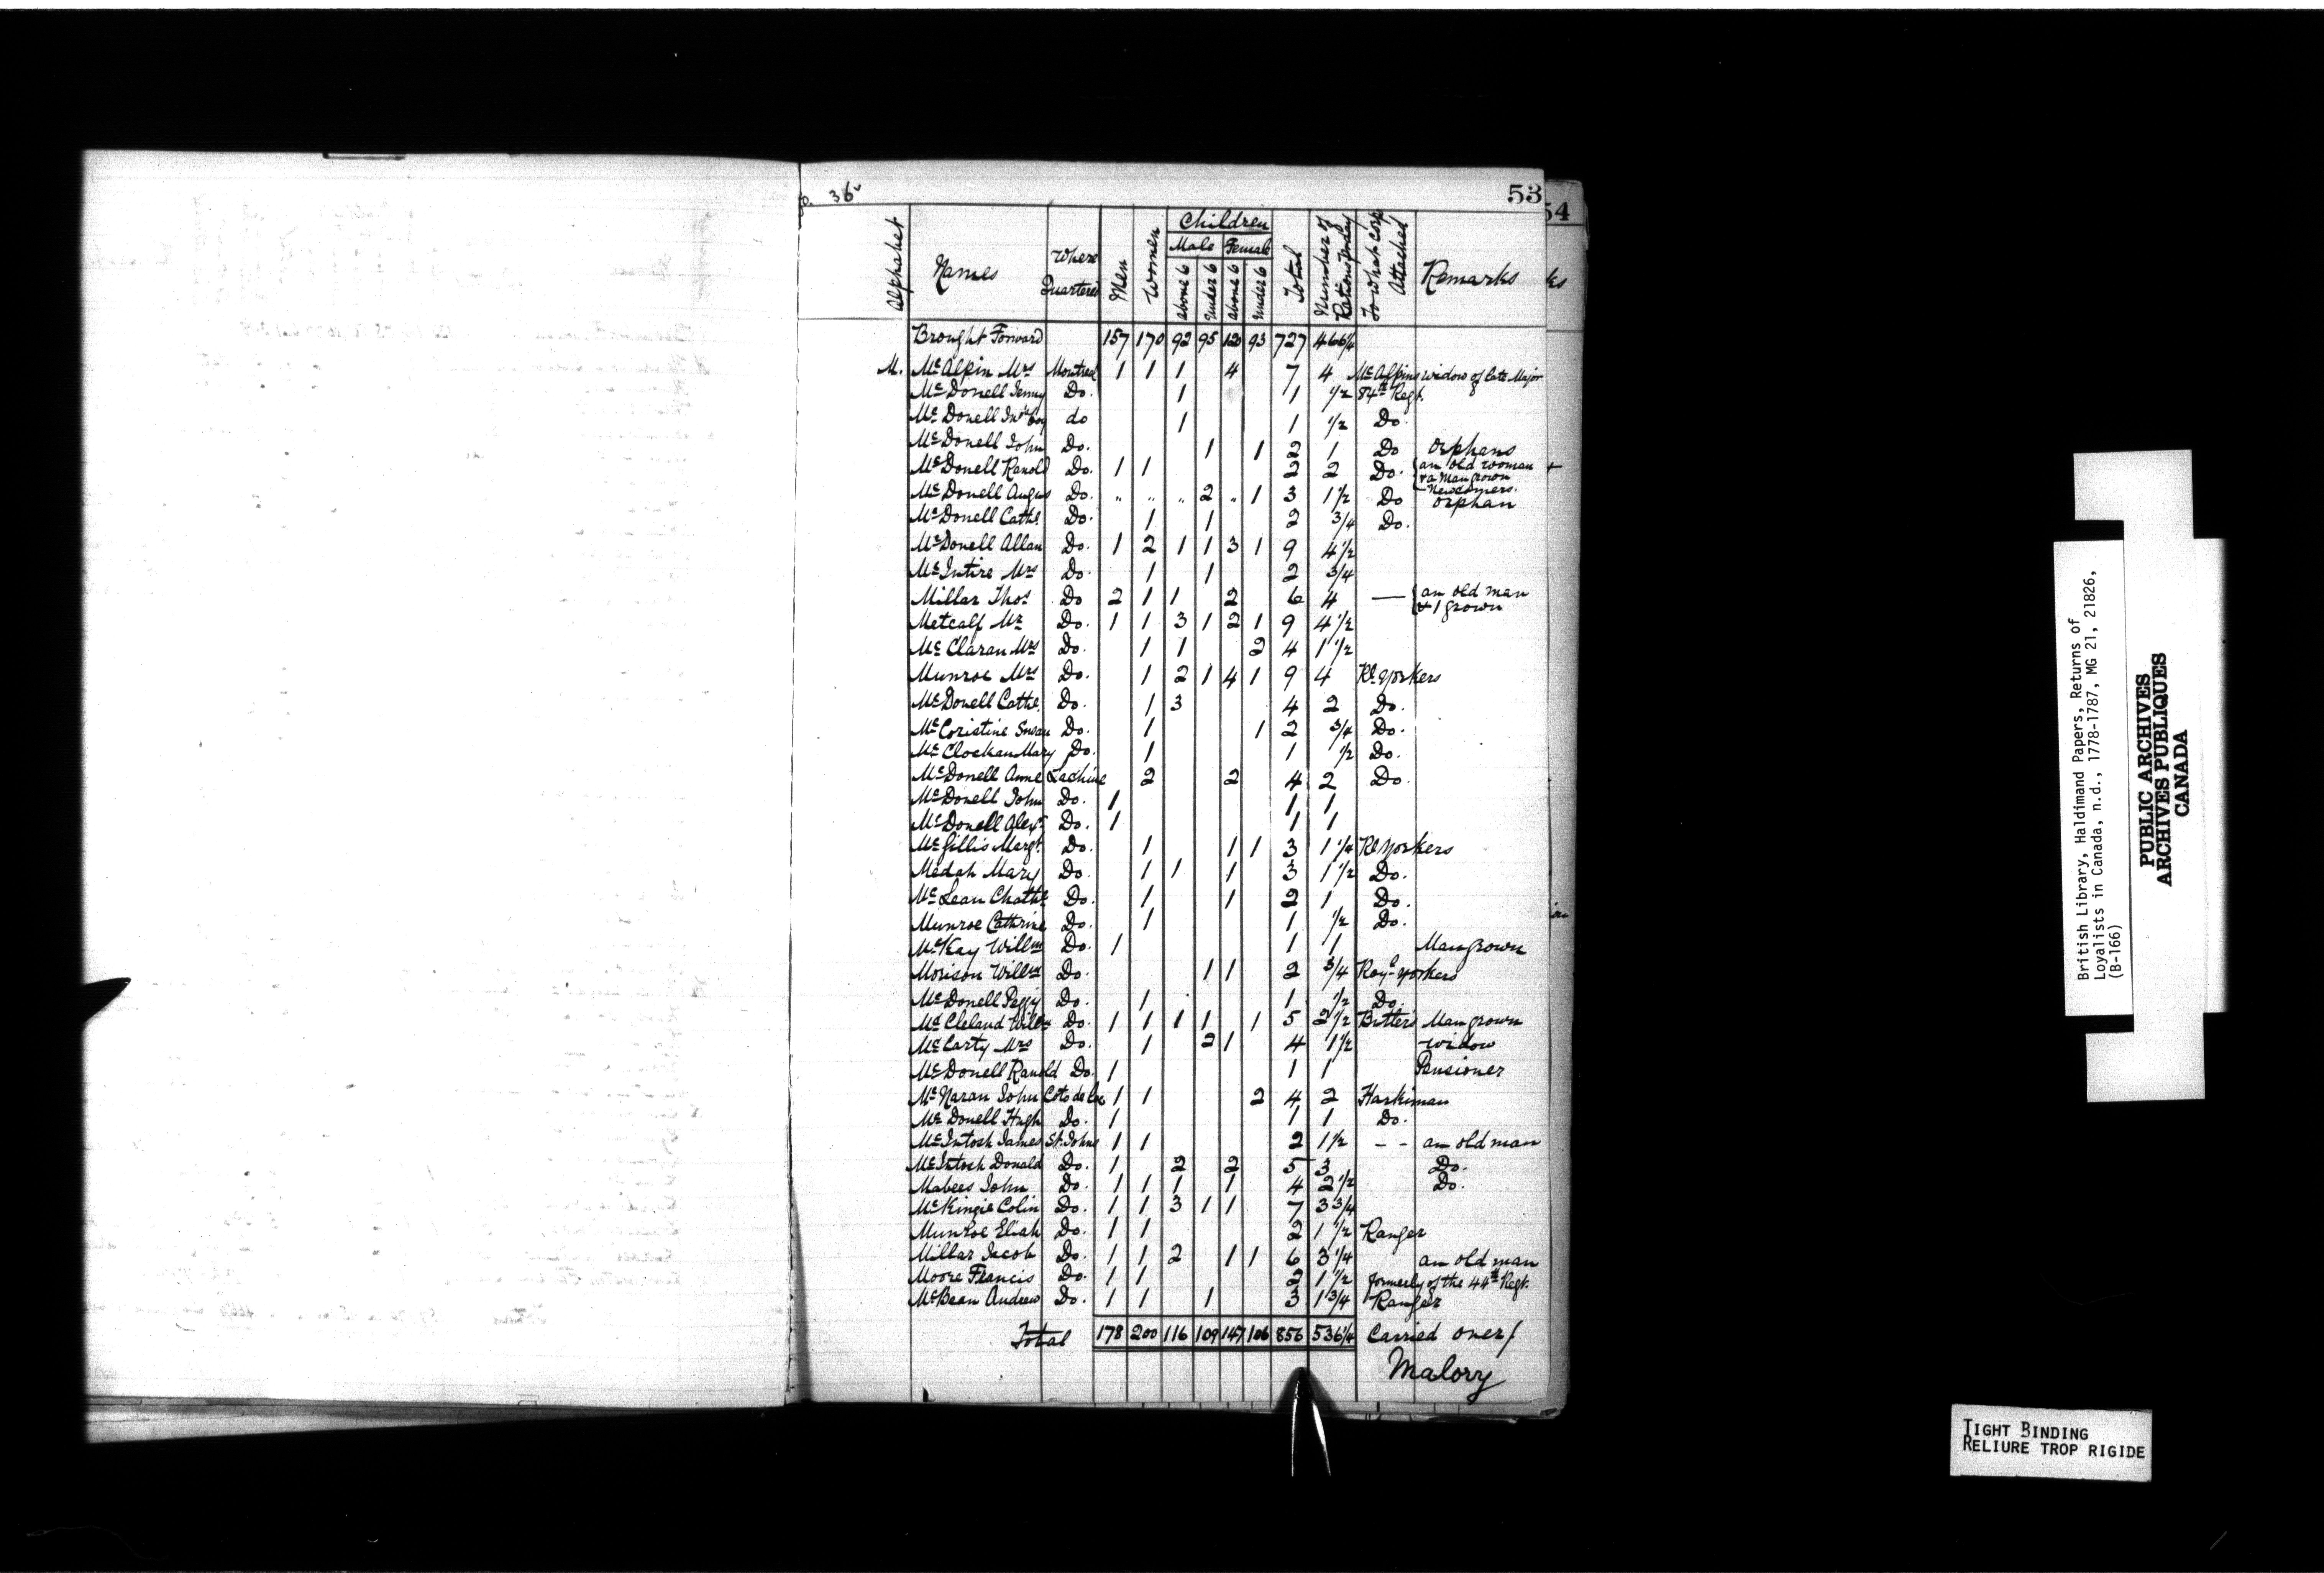 fo. 36
53
54
Alphabet Names Where Quartered Men Women Children Male above 6 under 6 Female above 6 under 6 Total Number of Rations pr day To what Corps Attached Remarks
Brought Forward 157 170 92 95 120 93 727 466 1/4
M. McAlpin Mrs Montreal 1 1 1 4 7 4 McAlpins widow of late Major
McDonell Jenny Do. 1 1 1/2 84th Regt.
McDonell Jno boy do 1 1 1/2 Do.
McDonell John Do. 1 1 2 1 Do Orphans
McDonell Ranold Do. 1 1 2 2 Do. {an old woman + & a Man grown Newcomers.
McDonell Angus Do. " " " 2 " 1 3 1 1/2 Do Orphan
McDonell Cathe. Do. 1 1 2 3/4 Do.
McDonell Allan Do. 1 2 1 1 3 1 9 4 1/2
McIntire Mrs Do. 1 1 2 3/4
Millar Thos Do 2 1 1 2 6 4 — {an old man & 1 grown
Metcalf Mr Do. 1 1 3 1 2 1 9 4 1/2
McClaran Mrs Do. 1 1 2 4 1 1/2
Munroe Mrs Do. 1 2 1 4 1 9 4 Rl. Yorkers
McDonell Cathe. Do. 1 3 4 2 Do.
McCoristine Susan Do. 1 1 2 3/4 Do.
McClockan Mary Do. 1 1 1/2 Do.
McDonell Anne Lachine 2 2 4 2 Do.
McDonell John Do. 1 1 1
McDonell Alexr Do. 1 1 1
McGillis Margt. Do. 1 1 1 3 1 1/4 Rl Yorkers
Medah Mary Do. 1 1 1 3 1 1/2 Do.
McLean Chathe Do. 1 1 2 1 Do.
Munroe Cathrine Do. 1 1 1/2 Do.
McKay Willm Do. 1 1 1 Man grown
Morison Willm Do. 1 1 2 3/4 Royl Yorkers
McDonell Peggy Do. 1 1 1/2 Do.
McCleland Willm Do. 1 1 1 1 1 5 2 1/2 Butlers Man grown
McCarty Mrs Do. 1 2 1 4 1 1/2 widow
McDonell Ranold Do. 1 1 1 Pensioner
McNaran John Coto de Lac 1 1 2 4 2 Harkiman
McDonell Hugh Do. 1 1 1 Do.
McIntosh James St. Johns 1 1 2 1 1/2 - - an old man
McIntosh Donald Do. 1 2 2 5 3 Do.
Mabees John Do. 1 1 1 1 4 2 1/2 Do.
McKingie Colin Do. 1 1 3 1 1 7 3 3/4
Munroe Eliah Do. 1 1 2 1 1/2 Ranger
Millar Jacob Do. 1 1 2 1 1 6 3 1/4 an old man
Moore Francis Do. 1 1 2 1 1/2 formerly of the 44th Regt.
McBean Andrew Do. 1 1 1 3 1 3/4 Ranger
Total 178 200 116 109 147 106 856 536 1/4 Carried over/
Malory
British Library, Haldimand Papers, Returns of
Loyalists in Canada, n.d., 1778-1787, MG 21, 21826,
(B-166)
PUBLIC ARCHIVES
ARCHIVES PUBLIQUES
CANADA
TIGHT BINDING
RELIURE TROP RIGIDE